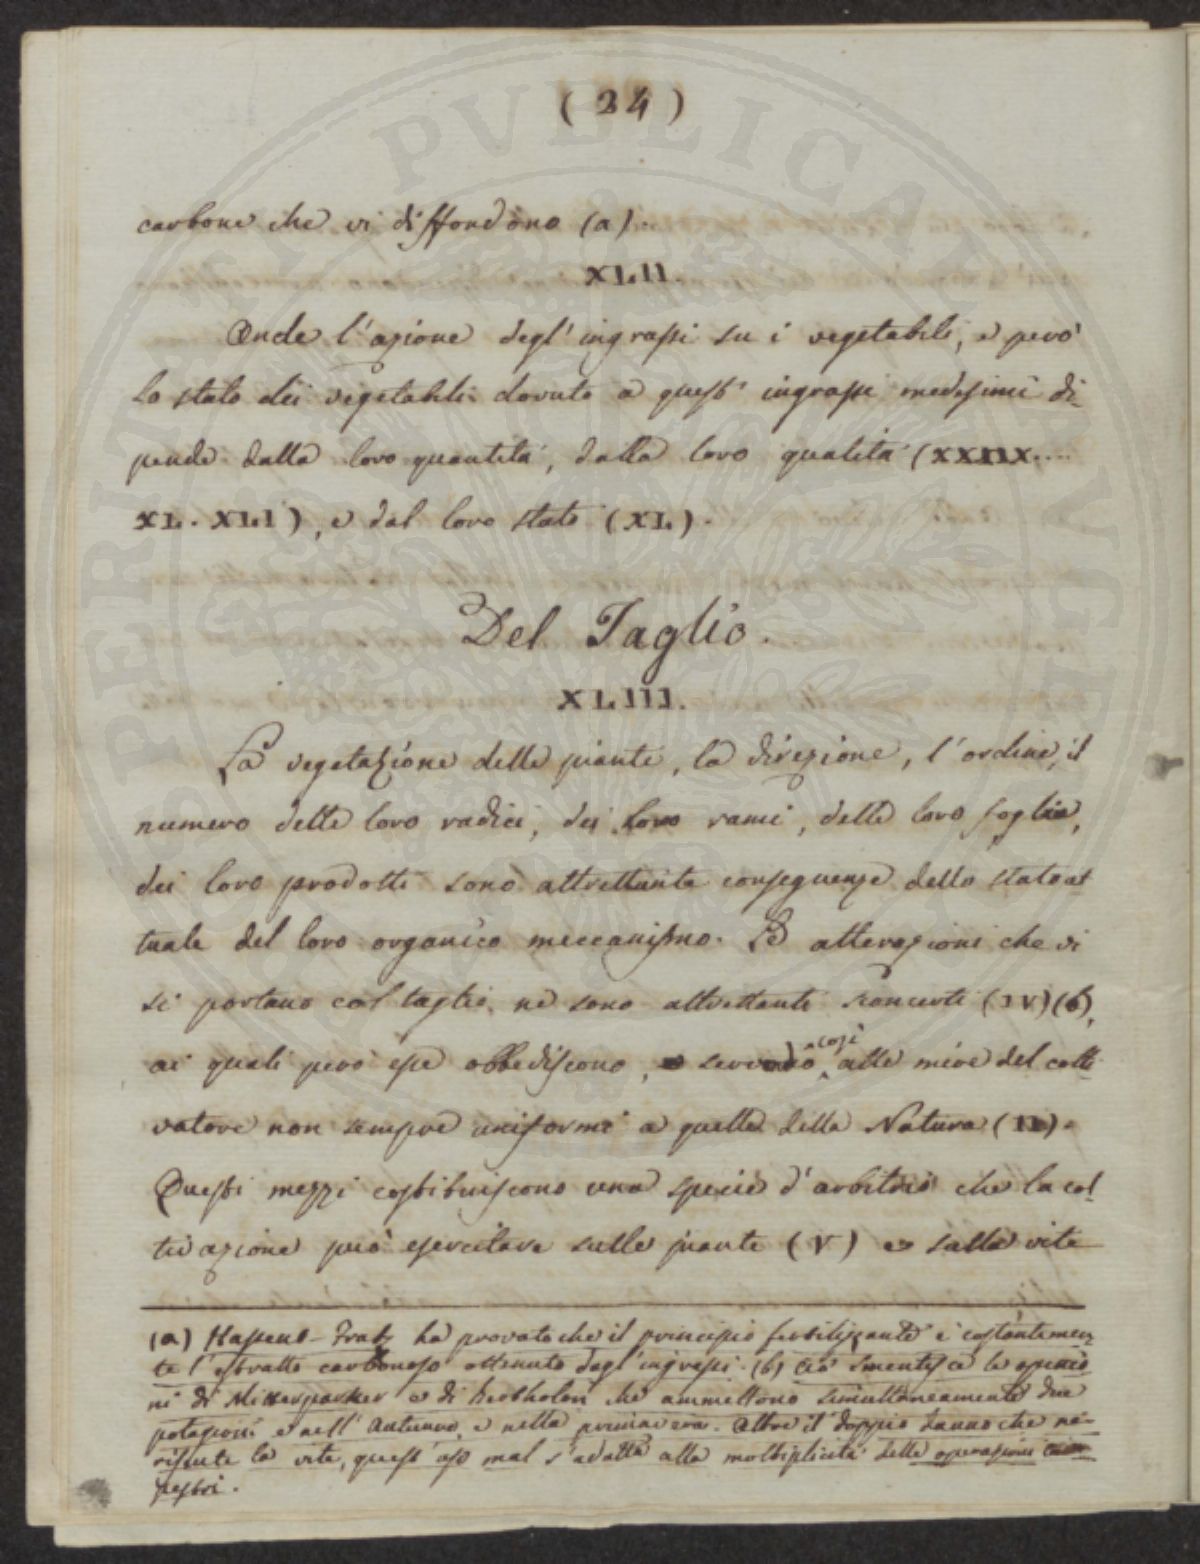 (24)
carbone che vi diffondono (a).
XLII.
Onde l'azione degl'ingrassi su i vegetabili, e però
lo stato dei vegetabili dovuto a questi ingrassi medesimi di-
pende dalla loro quantità, dalla loro qualità (XXXIX....
XL. XLI), e dal loro stato (XL).
Del Taglio.
XLIII.
La vegetazione delle piante, la direzione, l'ordine, il
numero delle loro radici, dei loro rami, delle loro foglie,
dei loro prodotti sono altrettante conseguenze dello stato at
tuale del loro organico meccanismo. Le alterazioni che vi
si portano col taglio ne sono altrettanti sconcerti (IV) (b),
ai quali però esse obbediscono, e servono così alle mire del colti
vatore non sempre uniformi a quelle della Natura (II).
Questi mezzi costituiscono una specie d'arbitrio che la col
tivazione può esercitare sulle piante (V) e sulla vite
(a) Hassens-Fratz ha provato che il principio fertilizzante è costantemen
te l'estratto carbonoso ottenuto dagl'ingrassi. (b) Ciò smentisce le opinio
ni di Mitterpacker e di Bertholon che ammettono simultaneamente due
potagioni e nell'Autunno, e nella primavera. Oltre il doppio danno che ne
risente la vite, quest'uso mal s'adatta alla moltiplicità delle operazioni cam
pestri.
SPERIMENTI PVBLICAE